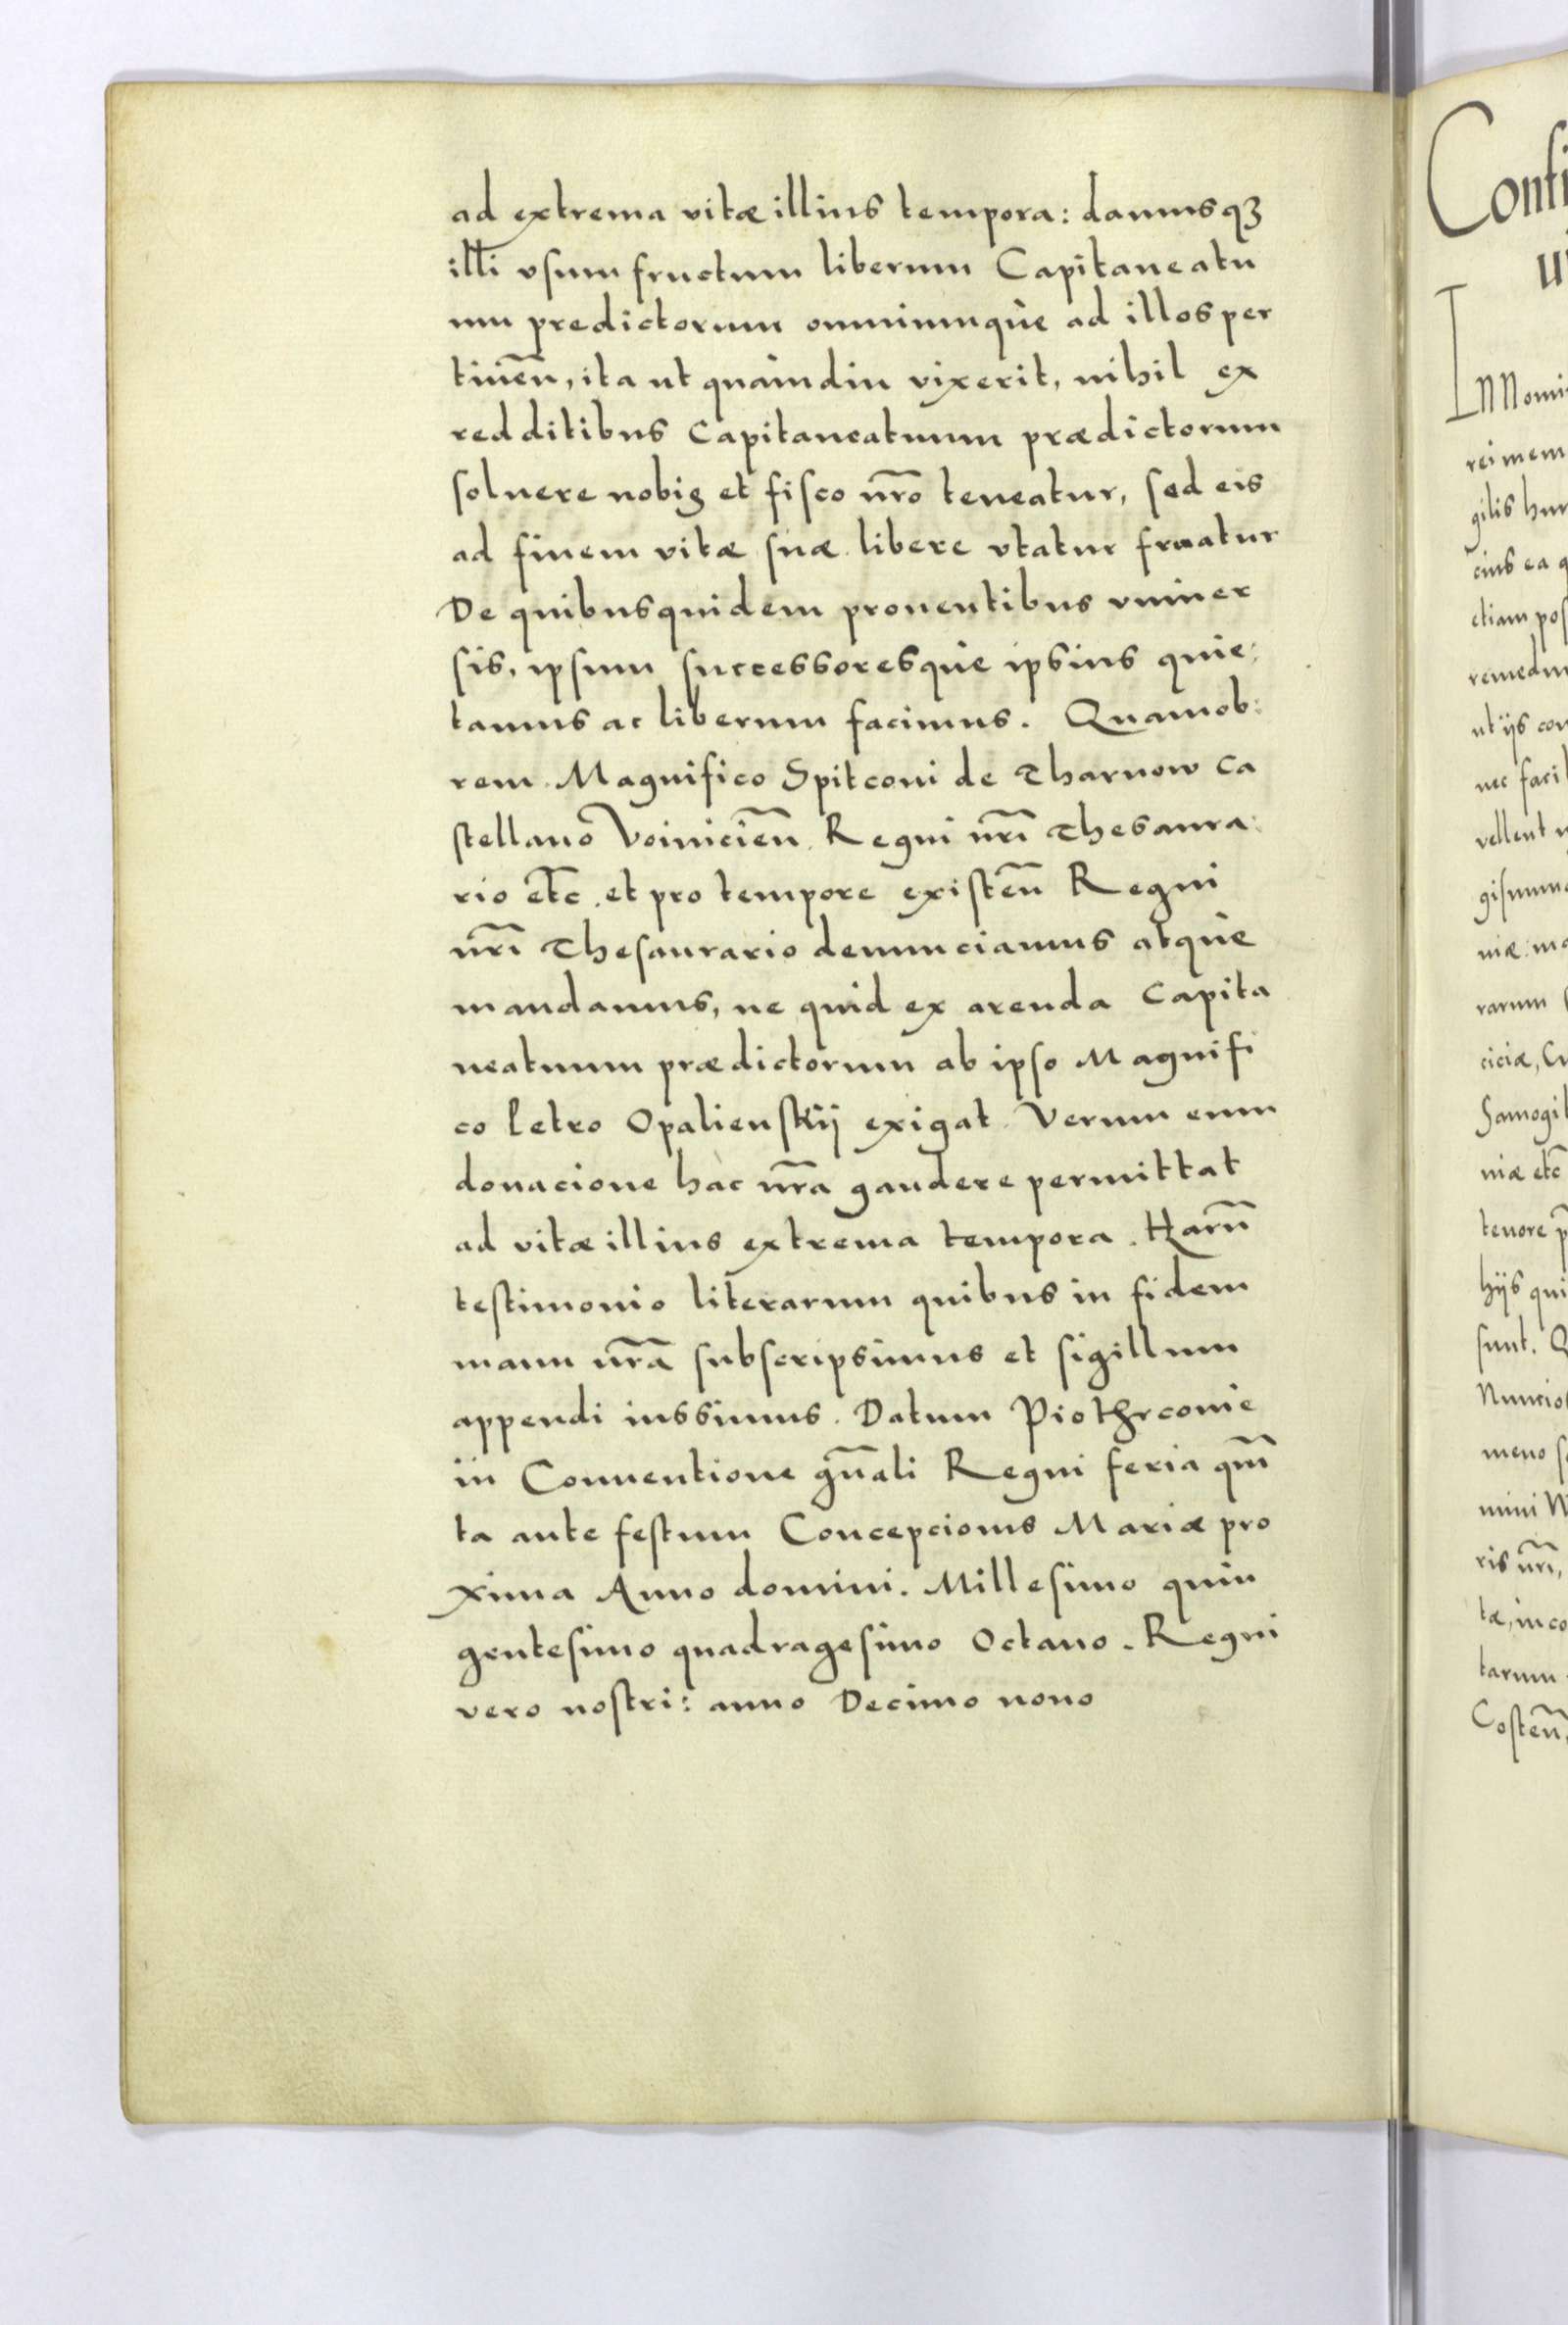 ad extrema vitæ illius tempora: damusqꝫ
illi vsum fructum liberum Capitaneatu
um predictorum omniumquè ad illos per
tineñ, ita ut quàmdiu vixerit, nihil ex
redditibus Capitaneatuum prædictorum
soluere nobis et fisco nr̃o teneatur, sed eis
ad finem vitæ suæ libere vtatur fruatur
De quibusquidem prouentibus vniuer
sis, ipsum successoresquè ipsius quie:
tamus ac liberum facimus. Quamob:
rem Magnifico Spitconi de Tharnow Ca
stellano Voiniciẽn Regni nr̃i Thesaura:
rio etc̃. et pro tempore existẽn Regni
nr̃i Thesaurario denunciamus atquè
mandamus, ne quid ex arenda Capita
neatuum prædictorum ab ipso Magnifi
co Petro Opalienskij exigat. Verum eum
donacione hac nr̃a gaudere permittat
ad vitæ illius extrema tempora. Harũ
testimonio literarum quibus in fidem
manu nr̃a subscripsimus et sigillum
appendi iussimus. Datum Piothrcouie
in Conuentione gñali Regni feria qũi
ta ante festum Concepcionis Mariæ pro
xima Anno domini. Millesimo quin
gentesimo quadragesimo Octauo. Regni
vero nostri: anno Decimo nono
Confi
In Nomi
rei mem
gilis hu
cius ea q
etiam pos
remediu
ut ijs con
nec facil
vellent
gismun
niæ: ma
rarum
ciciæ, Cu
Samogit
niæ etc̃
tenore
hijs qui
sunt. Q
Nuncio
meno
mini N
ris nr̃i,
tæ, in co
tarum
Costeñ,